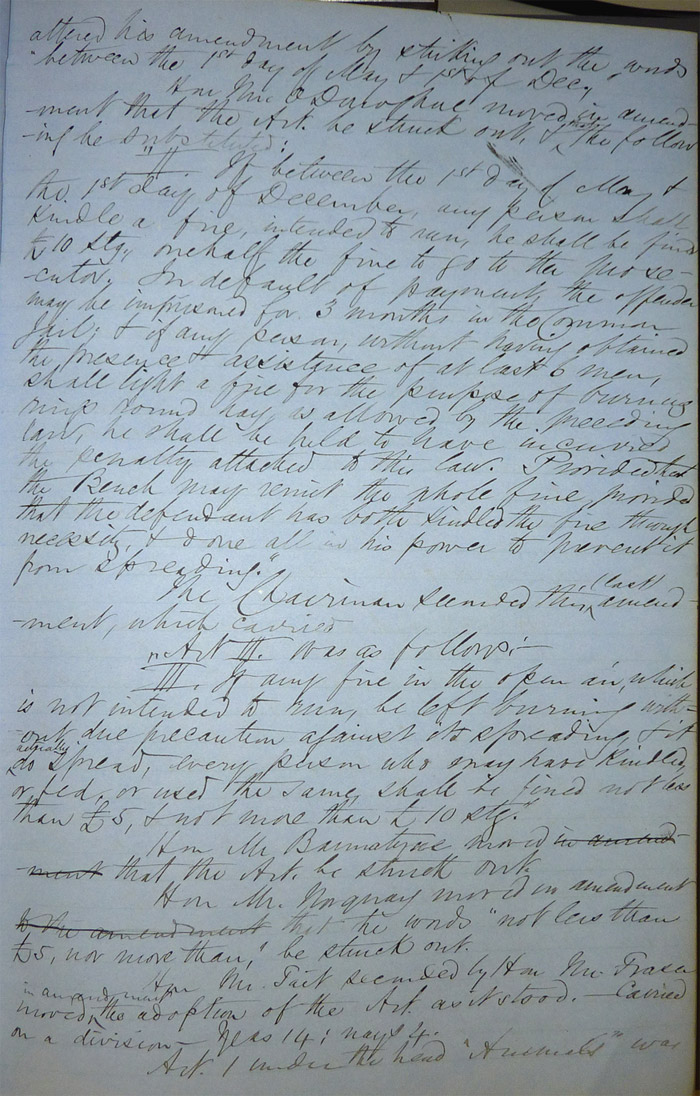 altered his amendment by striking out the words
"between the 1st day of May & 1st of Dec."
Hon Mr. O'Donoghue moved in amend-
-ment that the Art. be struck out, & that the follow
-ing be substituted:
"II If between the 1st day of May &
the 1st day of December, any person shall
kindle a fire, intended to run, he shall be fined
£10 stg., one half the fine to go to the prose-
-cutor. In default of payment, the offender
may be imprisoned for 3 months in the Common
Jail; & if any person, without having obtained
the presence & assistance of at least 6 men,
shall light a fire for the purpose of burning
rings round hay as allowed by the preceding
law, he shall be held to have incurred
the penalty attached to this law. Provided that
the Bench may remit the whole fine, provided
that the defendant has both kindled the fire through
necessity, & done all in his power to prevent it
from spreading."
The Chairman seconded this last amend-
-ment, which carried
Art III. was as follows:—
III. If any fire in the open air, which
is not intended to run, be left burning with-
-out due precaution against its spreading, & it
do actually spread, every person who may have kindled,
or fed, or used the same, shall be fined not less
than £5, & not more than £10 stg."
Hon Mr Bannatyne moved in amend-
-ment that the Art. be struck out.
Hon Mr. Norquay moved in amendment
to the amendment that the words "not less than
£5, nor more than," be struck out.
Hon Mr. Tait seconded by Hon Mr. Fraser
moved, in amendment the adoption of the Art. as it stood. — Carried
on a division — Yeas 14: nays 4.
Art. 1 under the head "Animals" was